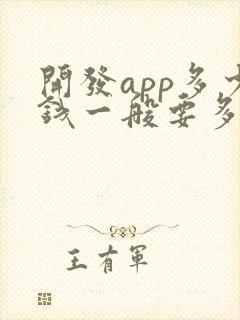 開發app多少
錢一般要多
王有軍